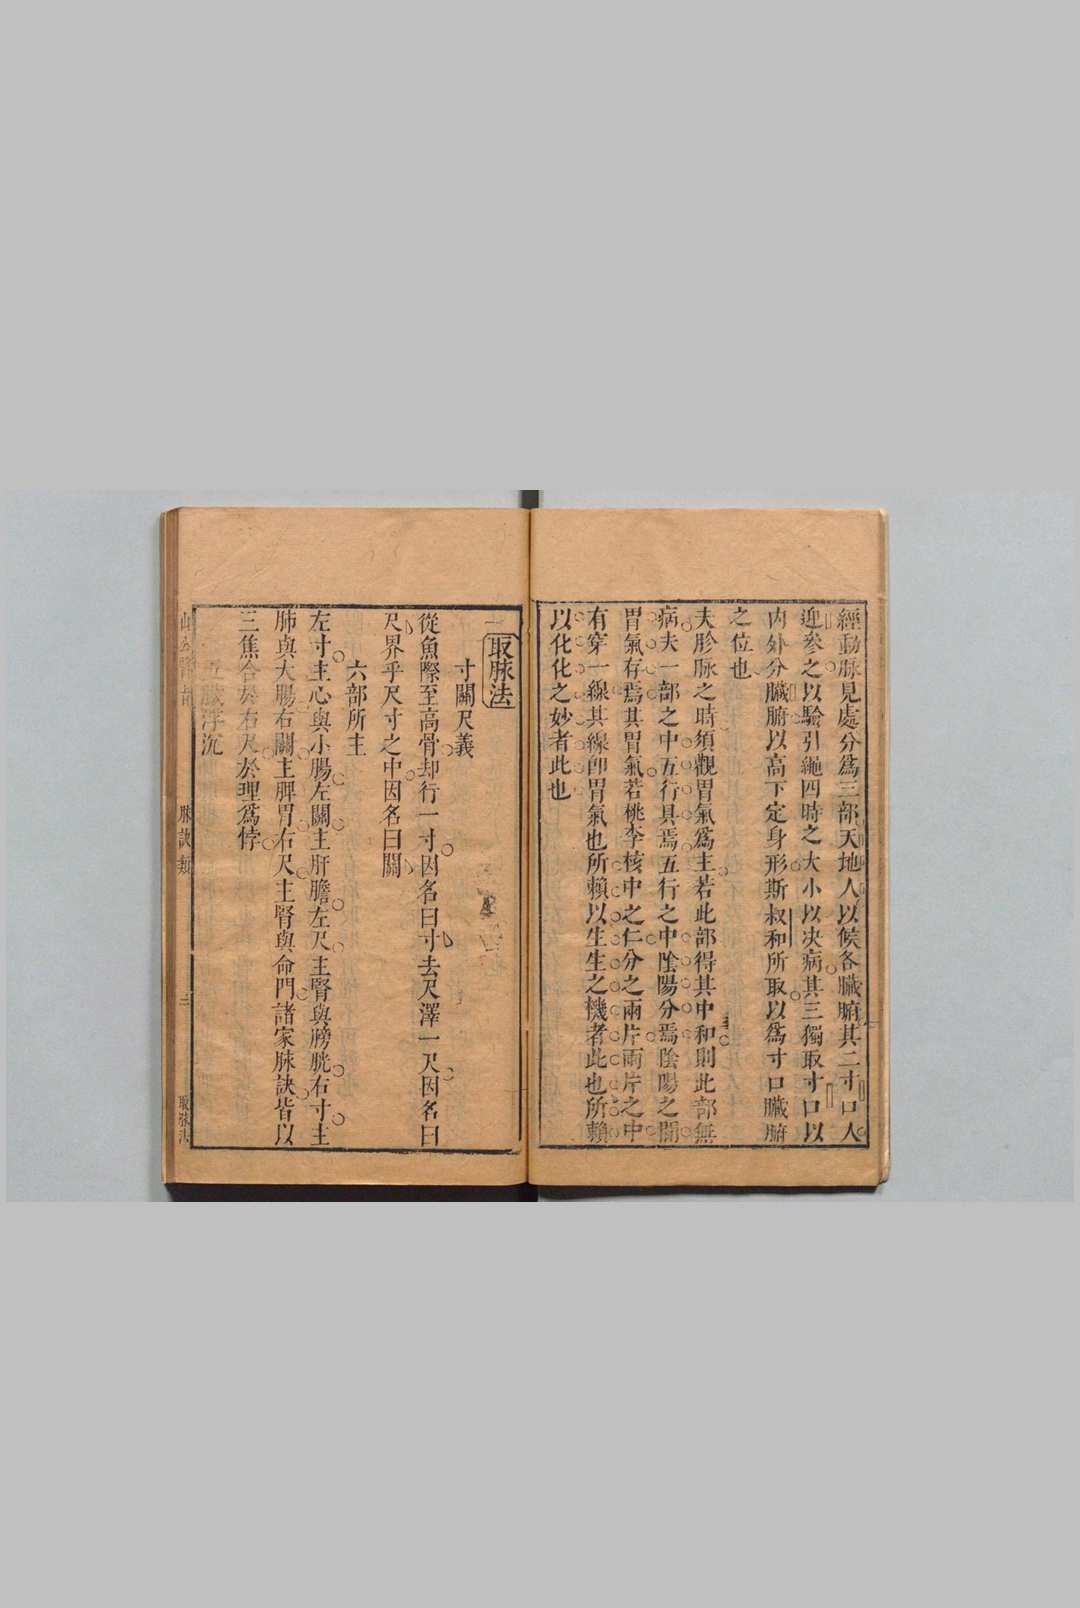 經動脉見處分爲三部天地人以候各臟腑其二寸口人
迎參之以驗引繩四時之大小以决病其三獨取寸口以
内外分臟腑以高下定身形斯叔和所取以爲寸口臟腑
之位也
夫胗脉之時須觀胃氣爲主若此部得其中和則此部無
病夫一部之中五行具焉五行之中陰陽分焉陰陽之間
胃氣存焉其胃氣若桃李核中之仁分之兩片兩片之中
有穿一線其線卽胃氣也所賴以生生之機者此也所賴
以化化之妙者此也
一取脉法
寸關尺義
從魚際至高骨却行一寸因名曰寸去尺澤一尺因名曰
尺界乎尺寸之中因名曰關
六部所主
左寸主心與小腸左關主肝膽左尺主腎與膀胱右寸主
肺與大腸右關主脾胃右尺主腎與命門諸家脉訣皆以
三焦合於右尺於理爲悖
五臟浮沉
脉訣類
三
取脉法